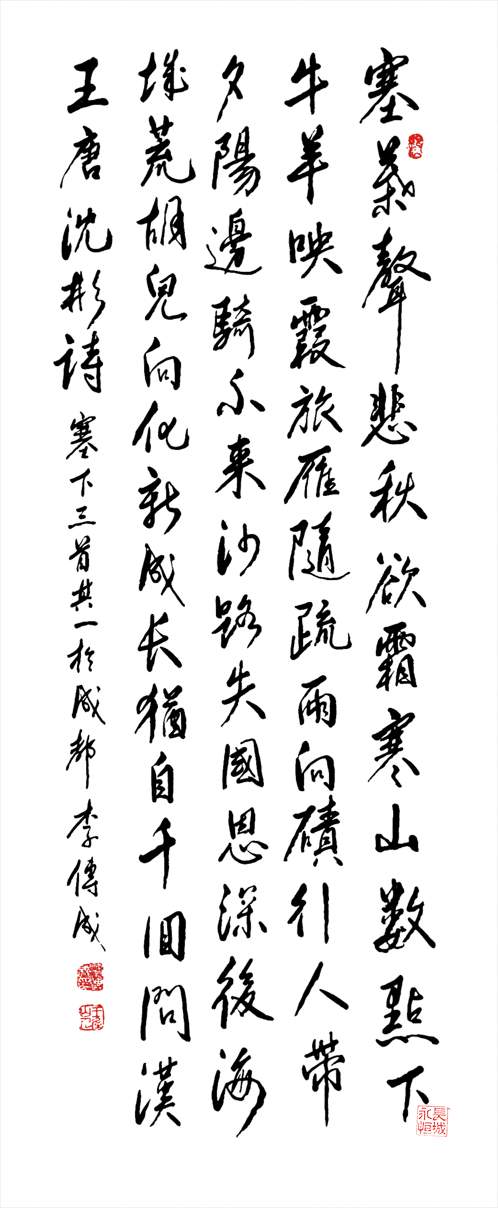 塞葉聲悲秋欲霜寒山數點下
牛羊映霞旅雁隨疏雨向磧行人帶
夕陽邊騎不來沙路失國恩深後海
城荒胡兒向化新成长猶自千回問漢
王唐沈彬詩塞下三首其一於成都李傳成
長城永恒